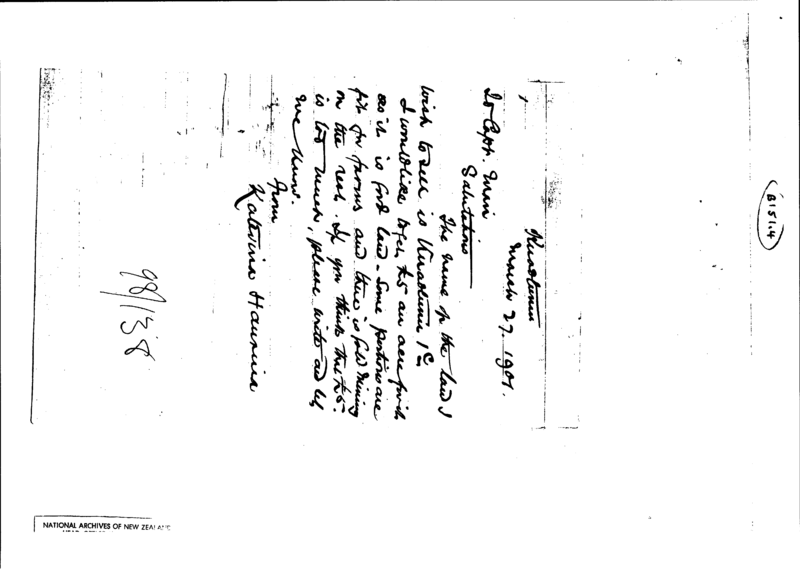 Kuaotunu
March 27. 1901.
To Capt.
Salutations
The name of the land I
wish to sell is Kuaotunu 1C.
I would like to get £5 an acre for it
as it is good land - some portions are
fit for farms and there is gold mining
on the rest. If you think that £5.
is too much, please write and let
me know.
from
Katerina Hauruia
98/138
B151.4
NATIONAL ARCHIVES OF NEW ZEALAND